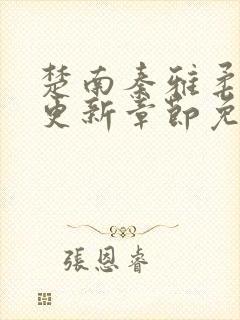 楚南秦雅
更新章節免
張恩睿